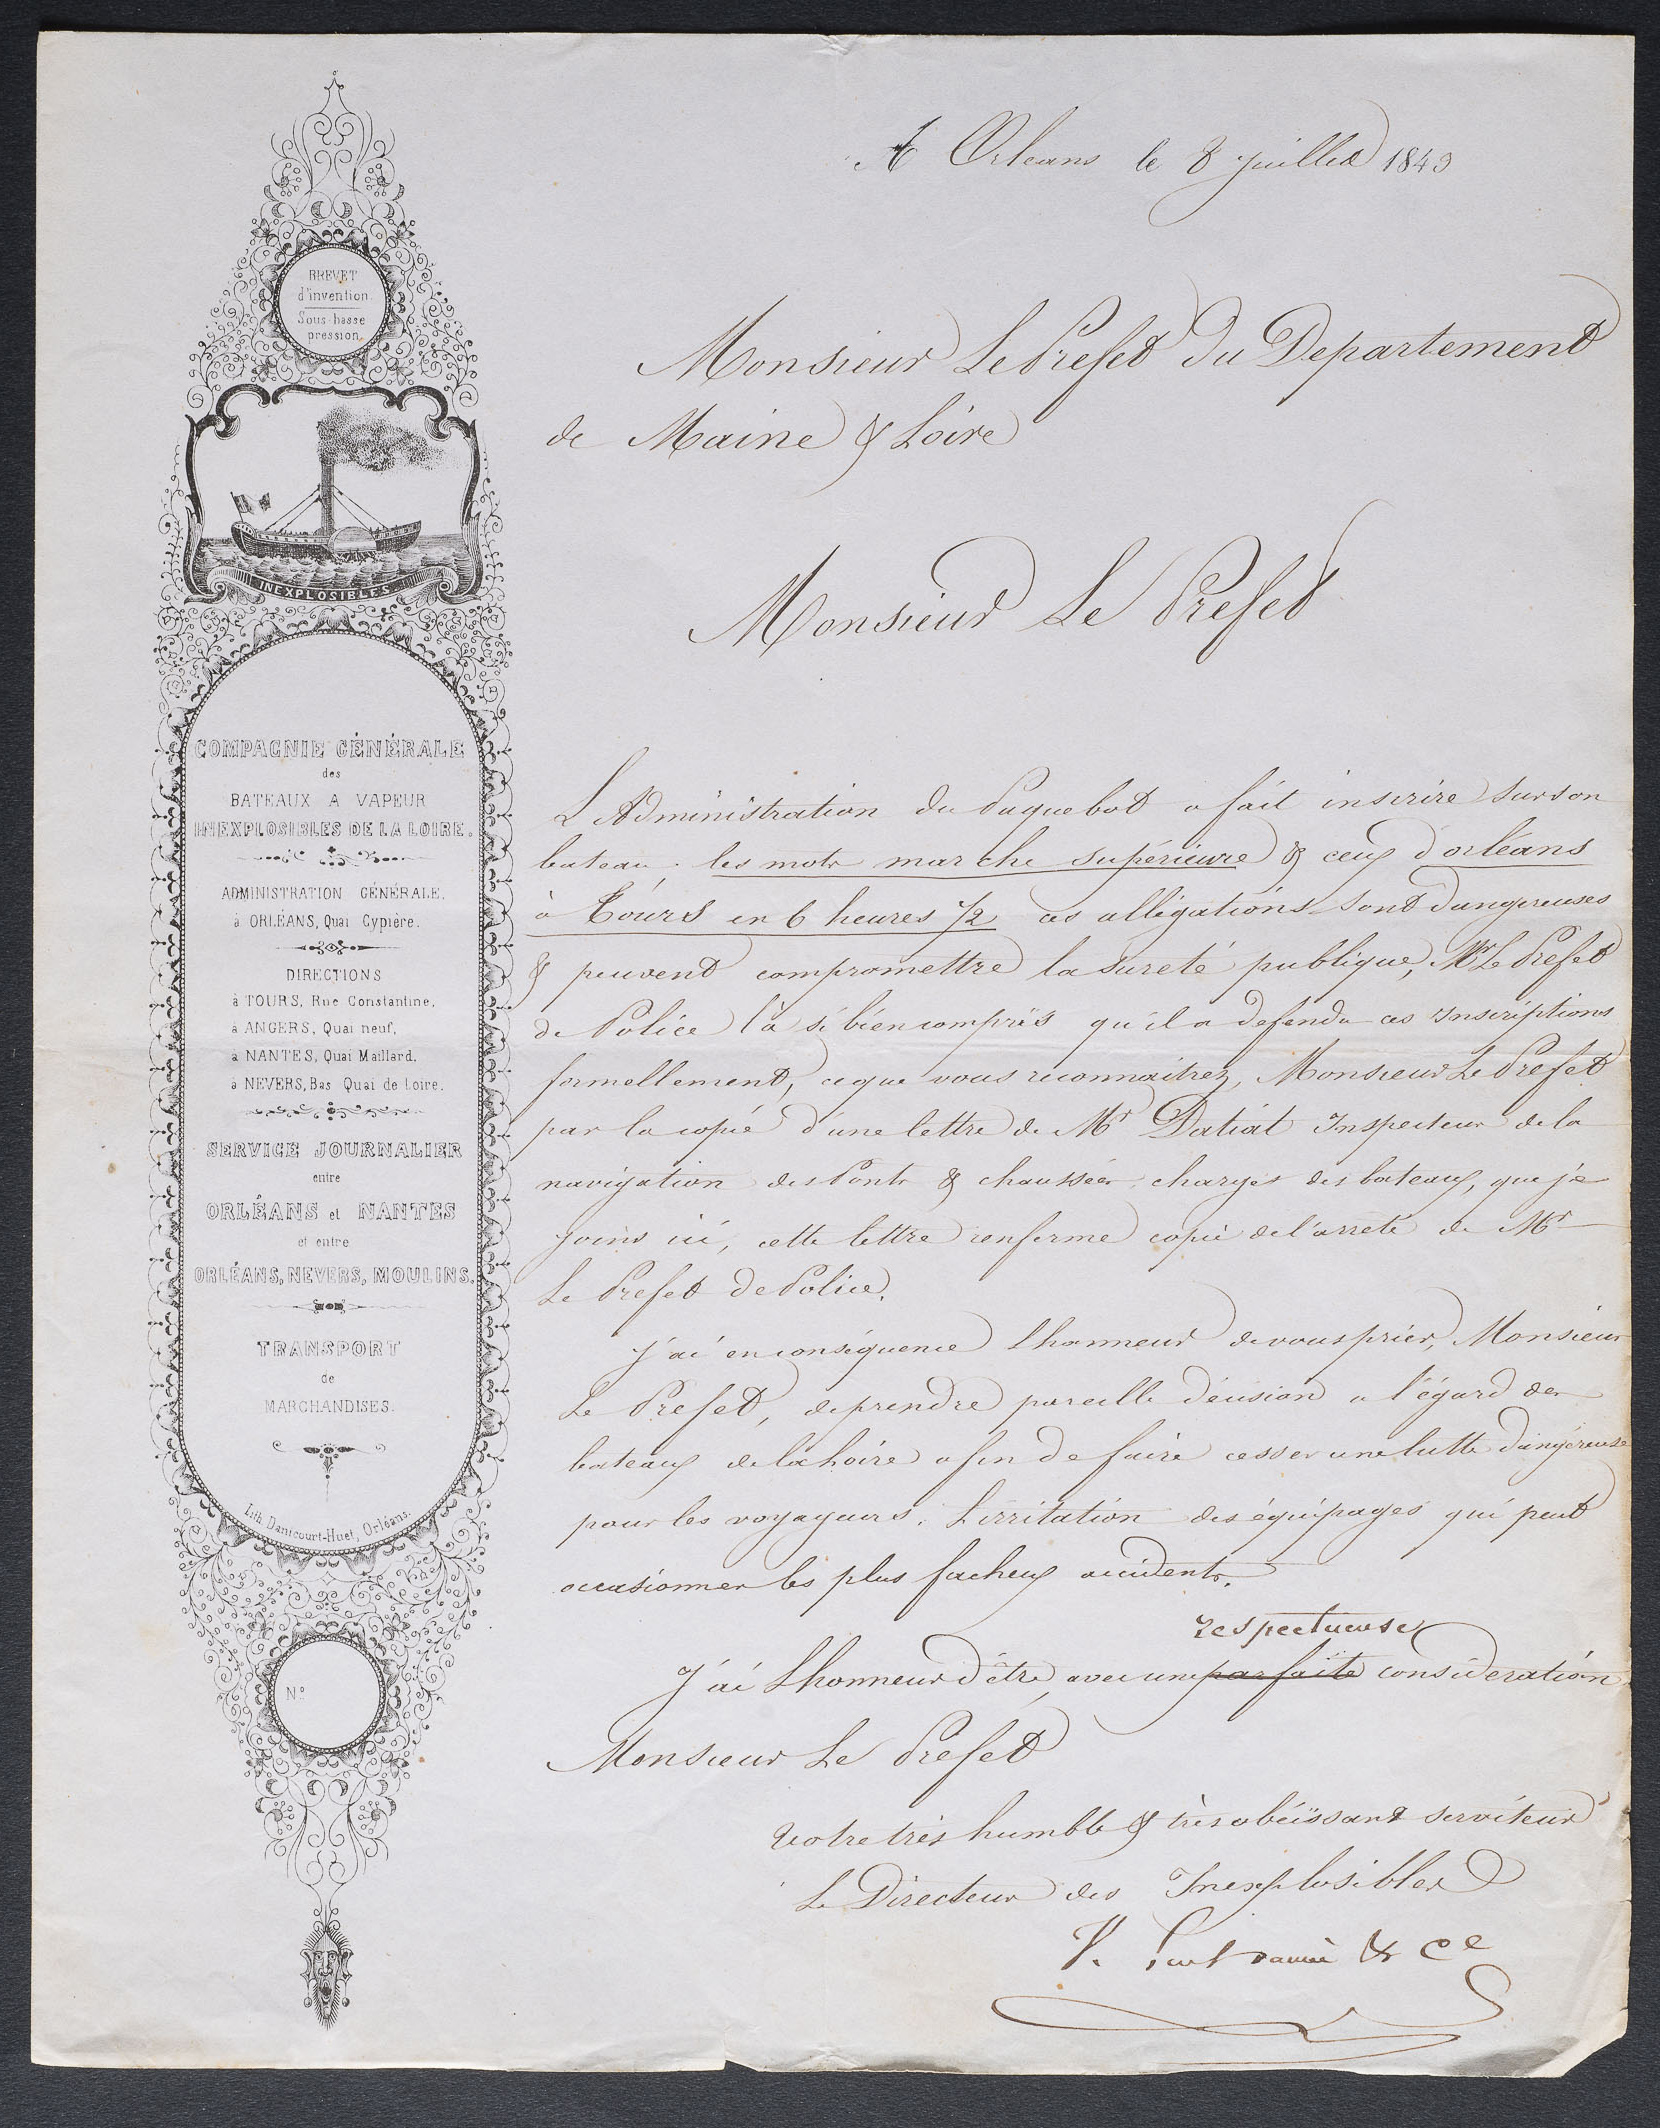 BREVET
d'invention
Sous-basse
pression
INEXPLOSIBLES
COMPAGNIE GÉNÉRALE
des
BATEAUX A VAPEUR
INEXPLOSIBLES DE LA LOIRE.
ADMINISTRATION GÉNÉRALE.
à ORLÉANS, Quai Cypière.
DIRECTIONS
à TOURS, Rue Constantine.
à ANGERS, Quai neuf,
à NANTES, Quai Maillard.
à NEVERS, Bas Quai de Loire.
SERVICE JOURNALIER
entre
ORLÉANS et NANTES
et entre
ORLÉANS, NEVERS, MOULINS.
TRANSPORT
de
MARCHANDISES.
Lith. Danicourt-Huet, Orléans.
N°
A Orleans le 8 Juillet 1843
Monsieur Le Prefet du Departement
de Maine & Loire
Monsieur Le Prefet
L'Administration du Paquebot a fait inscrire sur son
bateau, les mots marche supérieure & ceux d'orléans
à Tours en 6 heures 1/2 ces alligations sont dangereuses
& peuvent compromettre la sureté publique, Mr Le Prefet
de Police l'a si bien compris qu'il a defendu ces Inscriptions
formellement, ce que vous reconnaitrez, Monsieur Le Prefet
par la copie d'une lettre de Mr Datiat Inspecteur de la
navigation des Ponts & chaussées chargés des bateaux, que je
joins ici, cette lettre renferme copie de l'arreté de Mr
Le Prefet de Police.
J'ai en conséquence L'honneur de vous prier, Monsieur
Le Prefet, de prendre pareille décision a l'égard des
bateaux de la Loire afin de faire cesser une lutte dangéreuse
pour les voyageurs. L'irritation des équipages qui peut
occasionner les plus facheux accidents.
respectueuse
J'ai L'honneur d'être, avec une parfaite consideration
Monsieur Le Prefet
Votre très humble & très obéissant serviteur
Le Directeur des Inexplosibles
V. & Ce